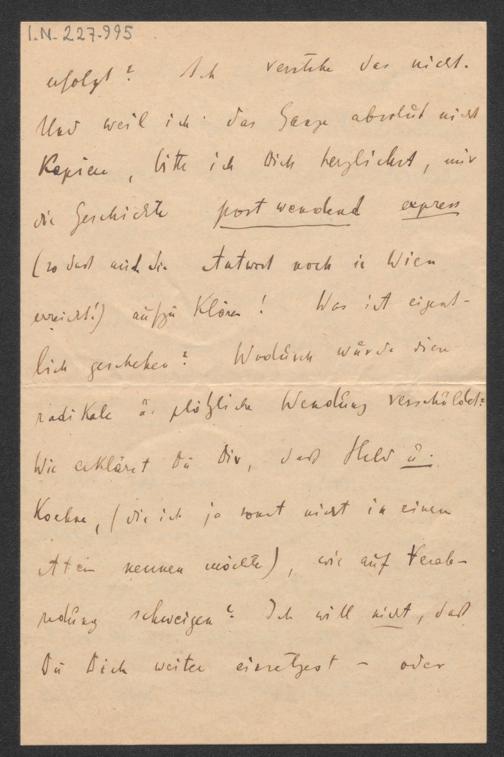 I.N. 227.995
erfolgt? Ich verstehe das nicht.
Und weil ich das Ganze absolut nicht
Kapiere, bitte ich Dich herzlichst, mir
die Geschichte postwendend express
(so dass mich die Antwort noch in Wien
erreicht!) aufzuklären! Was ist eigent-
lich geschehen? Wodurch wurde diese
radikale u. plötzliche Wendung verschuldet?
Wie erklärst Du Dir, dass Held u.
Koehne, (die ich ja sonst nicht in einem
Atem nennen möchte), wie auf Verab-
redung schweigen? Ich will nicht, dass
Du Dich weiter einsetzest – oder